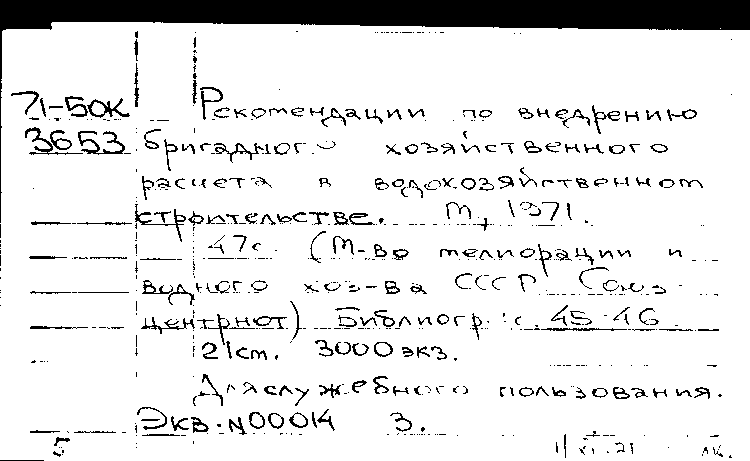 71-50К Рекомендации по внедрению
3653 бригадного хозяйственного
расчета в водохозяйственном
строительстве. М, 1971.
47с. (М-во мелиорации и
водного хоз-ва СССР. Союз-
центрнот) Библиогр.: с. 45-46
21см. 3000 экз.
Для служебного пользования.
Экз. N00014 3.
5